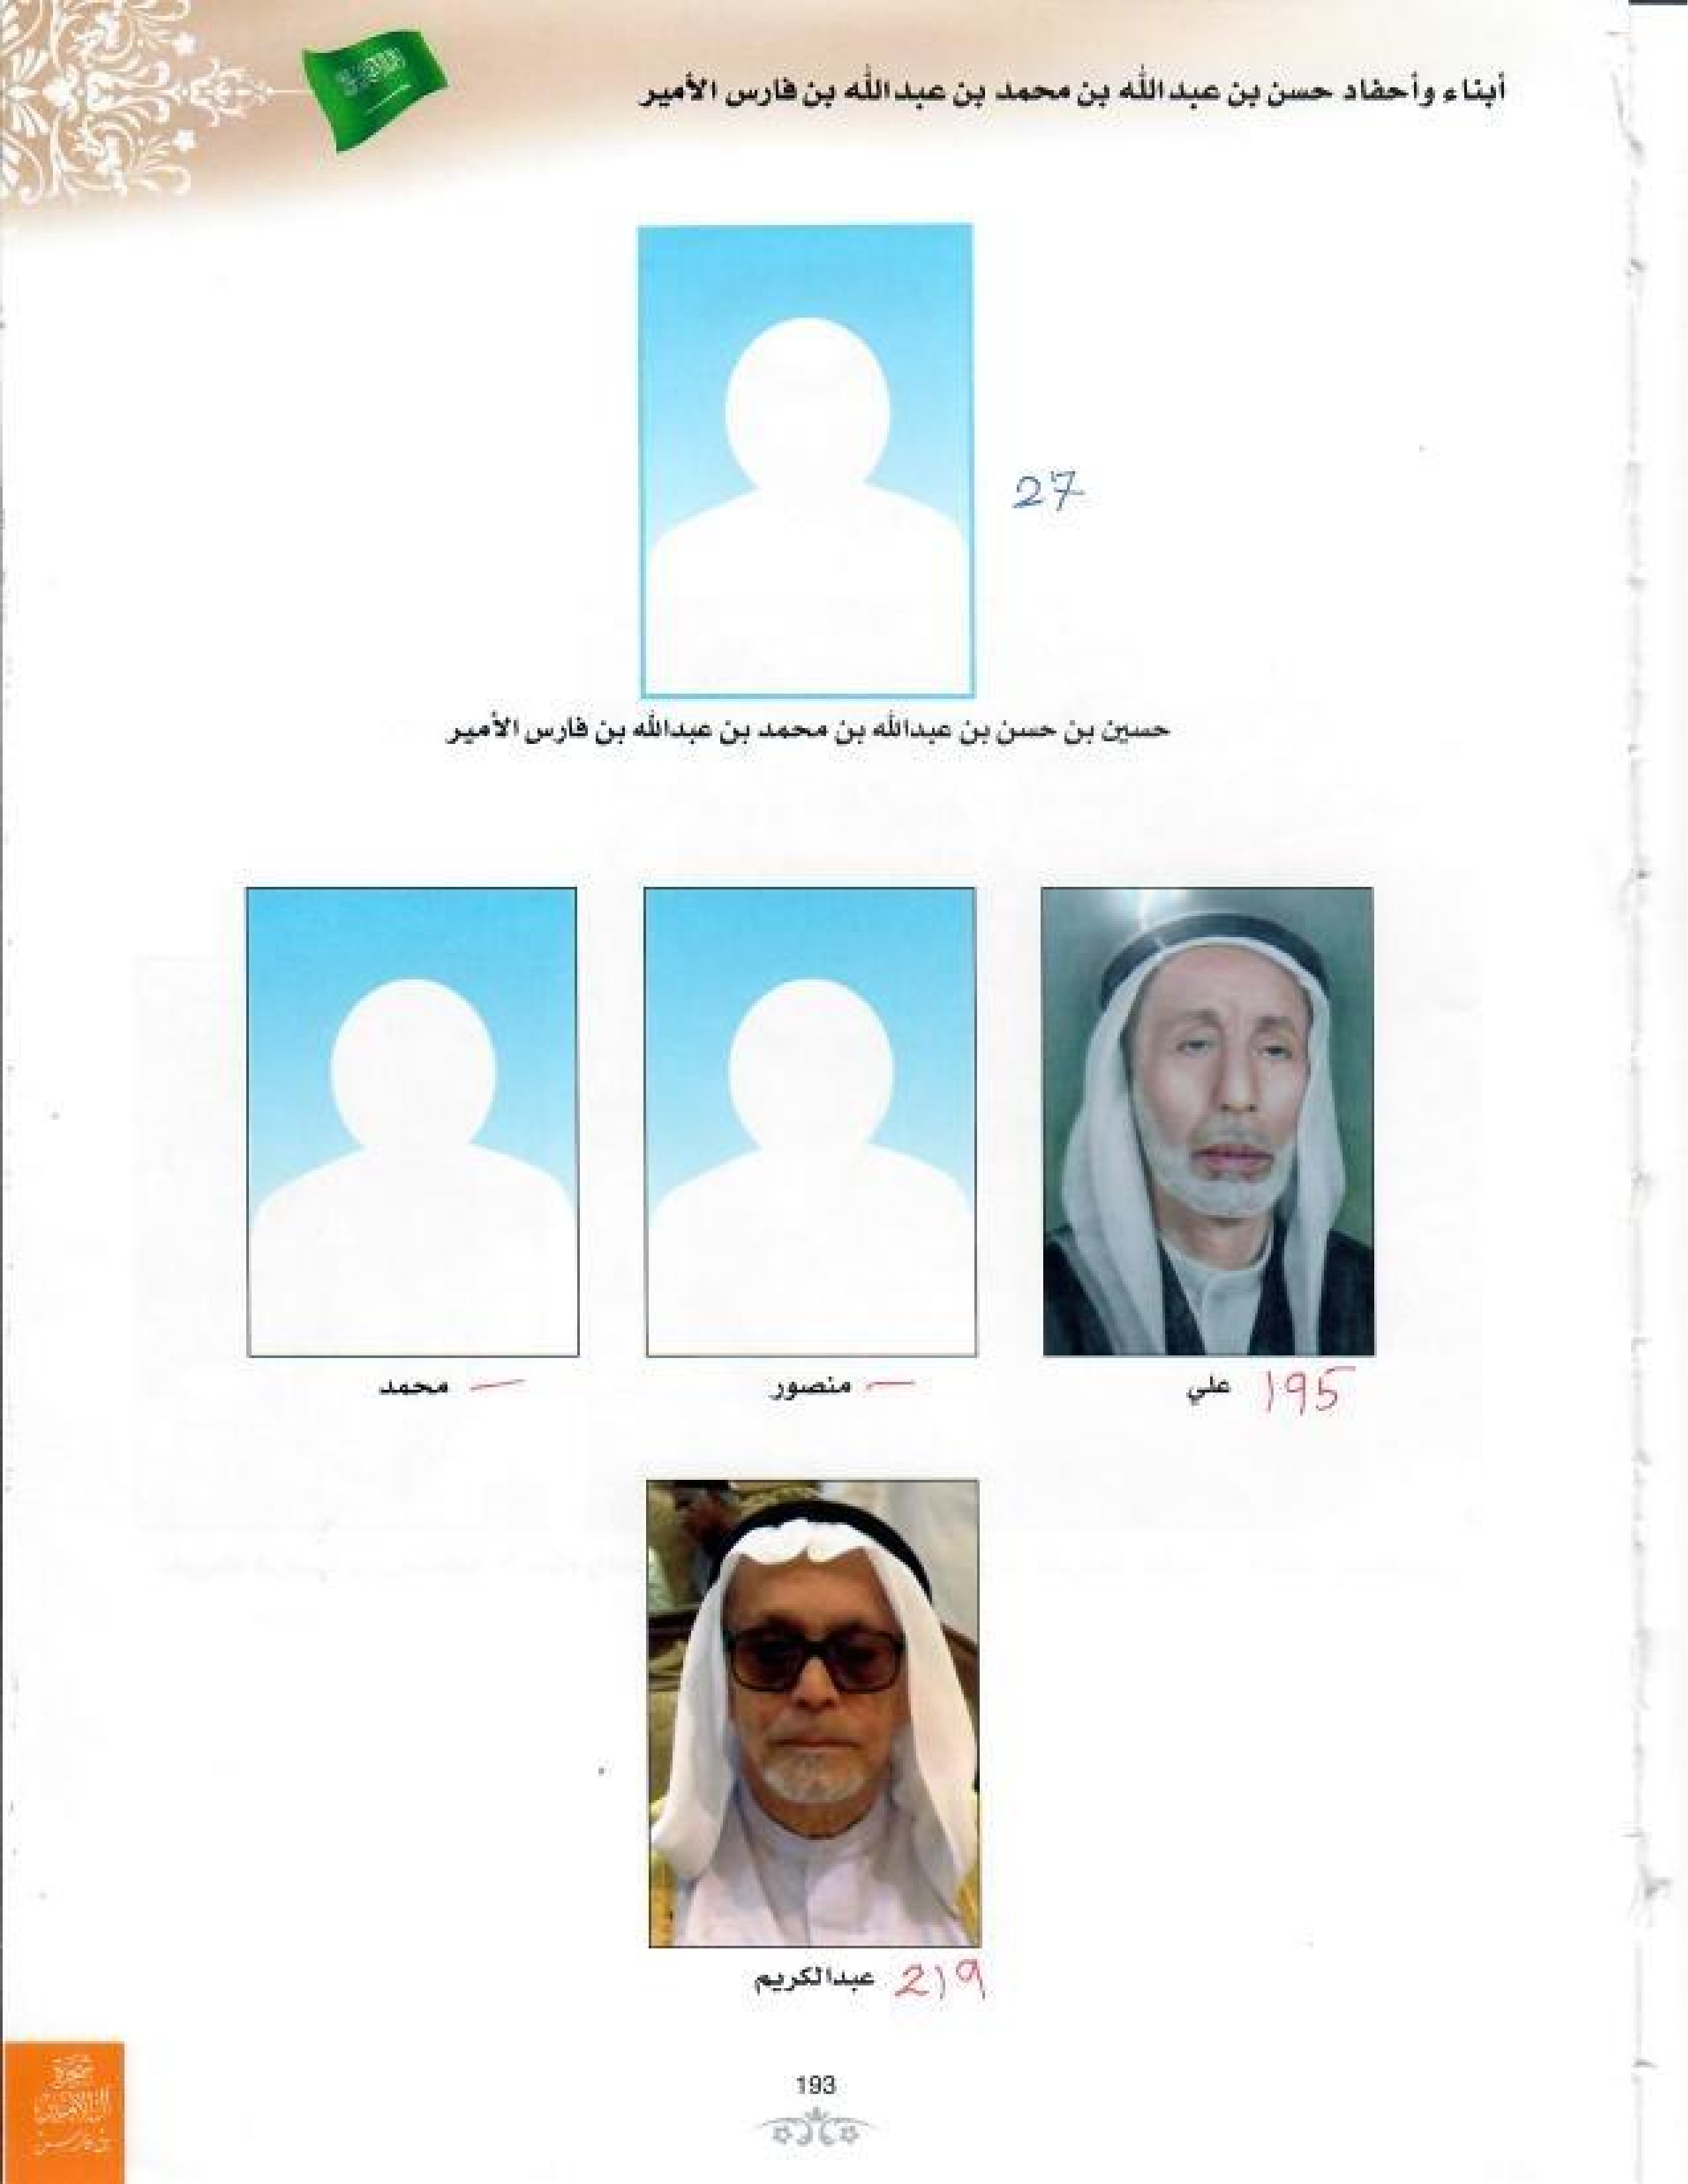 أبناء وأحفاد حسن بن عبدالله بن محمد بن عبدالله بن فارس الأمير
27
حسين بن حسن بن عبدالله بن محمد بن عبدالله بن فارس الأمير
195 علي
— منصور
— محمد
219 عبدالكريم
193
شجرة
بن فارس